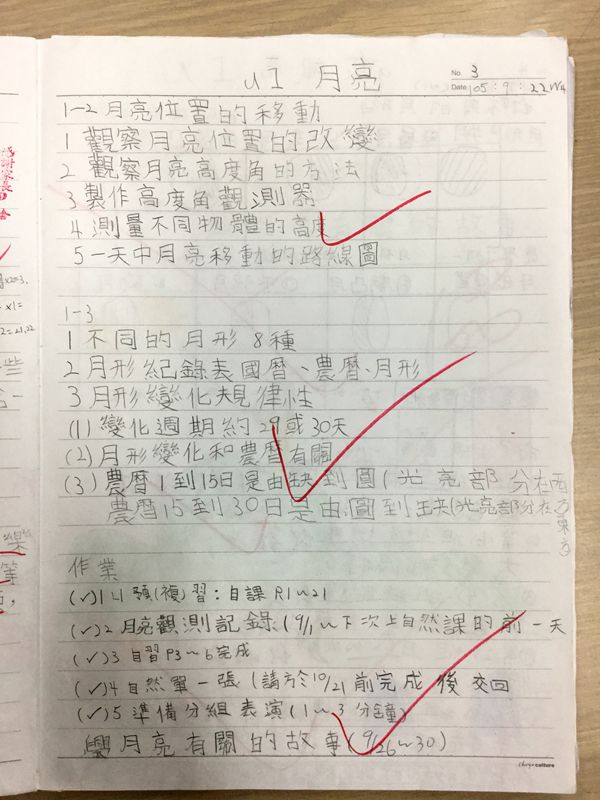 u1 月亮
No. 3
Date 105.9.22 W4
1-2月亮位置的移動
1 觀察月亮位置的改變
2 觀察月亮高度角的方法
3 製作高度角觀測器
4 測量不同物體的高度
5 一天中月亮移動的路線圖
1-3
1 不同的月形 8種
2 月形紀錄表國曆、農曆、月形
3 月形變化規律性
(1) 變化週期約29或30天
(2) 月形變化和農曆有關
(3) 農曆1到15日是由缺到圓(光亮部分在西方
農曆15到30日是由圓到缺(光亮部分在東方
作業
(✓)1 u1預(複)習:自課P1~21
(✓)2 月亮觀測記錄(9/1~下次上自然課的前一天
(✓)3 自習P3~6完成
(✓)4 自然單一張(請於10/21前完成後交回
(✓)5 準備分組表演(1~3分鐘)
與月亮有關的故事(9/26~30)